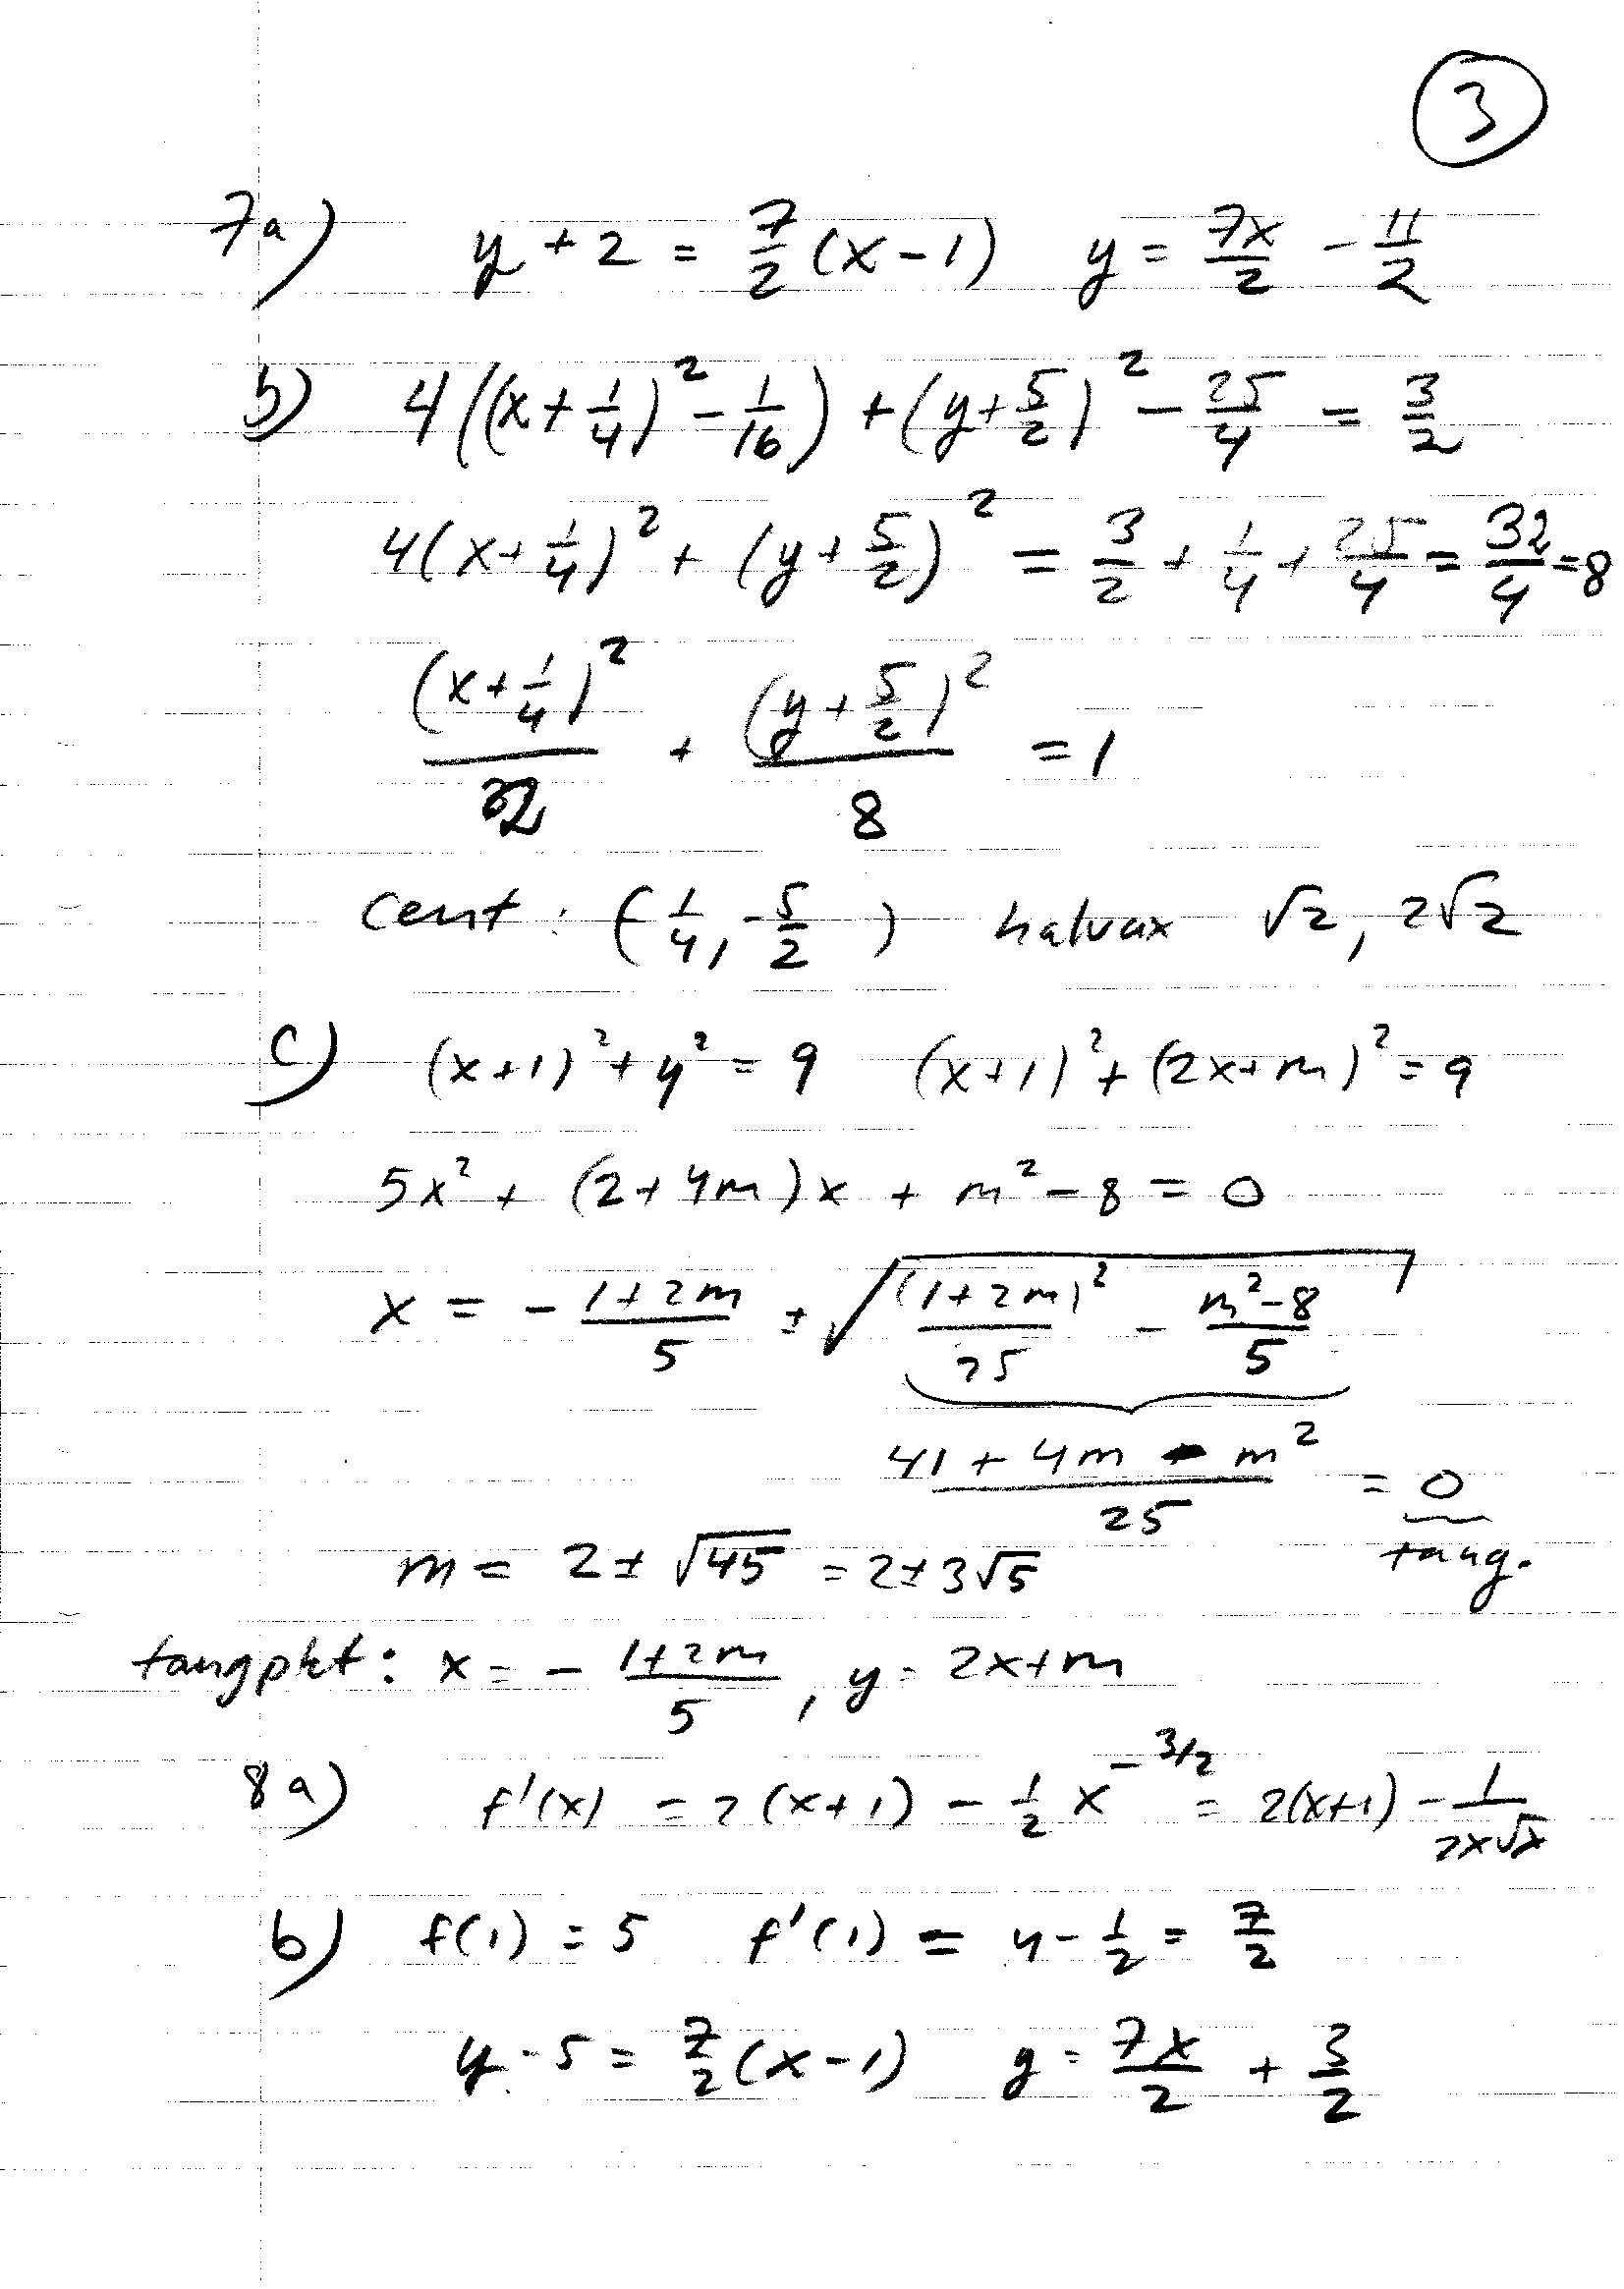 3
7a) y + 2 = 7/2 (x - 1) y = 7x/2 - 11/2
b) 4((x + 1/4)² - 1/16) + (y + 5/2)² - 25/4 = 3/2
4(x + 1/4)² + (y + 5/2)² = 3/2 + 1/4 + 25/4 = 32/4 = 8
(x + 1/4)²/2 + (y + 5/2)²/8 = 1
cent: (-1/4, -5/2) halvax √2, 2√2
c) (x+1)² + y² = 9 (x+1)² + (2x+m)² = 9
5x² + (2 + 4m)x + m² - 8 = 0
x = - (1+2m)/5 ± √((1+2m)²/25 - (m²-8)/5)
(41 + 4m - m²)/25 = 0
m = 2 ± √45 = 2 ± 3√5 tang.
tangpkt: x = - (1+2m)/5, y = 2x+m
8a) f'(x) = 2(x+1) - 1/2 x^(-3/2) = 2(x+1) - 1/(2x√x)
b) f(1) = 5 f'(1) = 4 - 1/2 = 7/2
y - 5 = 7/2 (x - 1) y = 7x/2 + 3/2